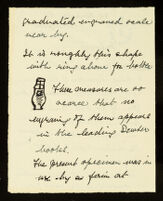 graduated engraved scale
near by.
It is roughly this shape
with ring above for
These measures are so
scarce that no
engraving of them appears
in the leading
books.
The present specimen was in
use by a